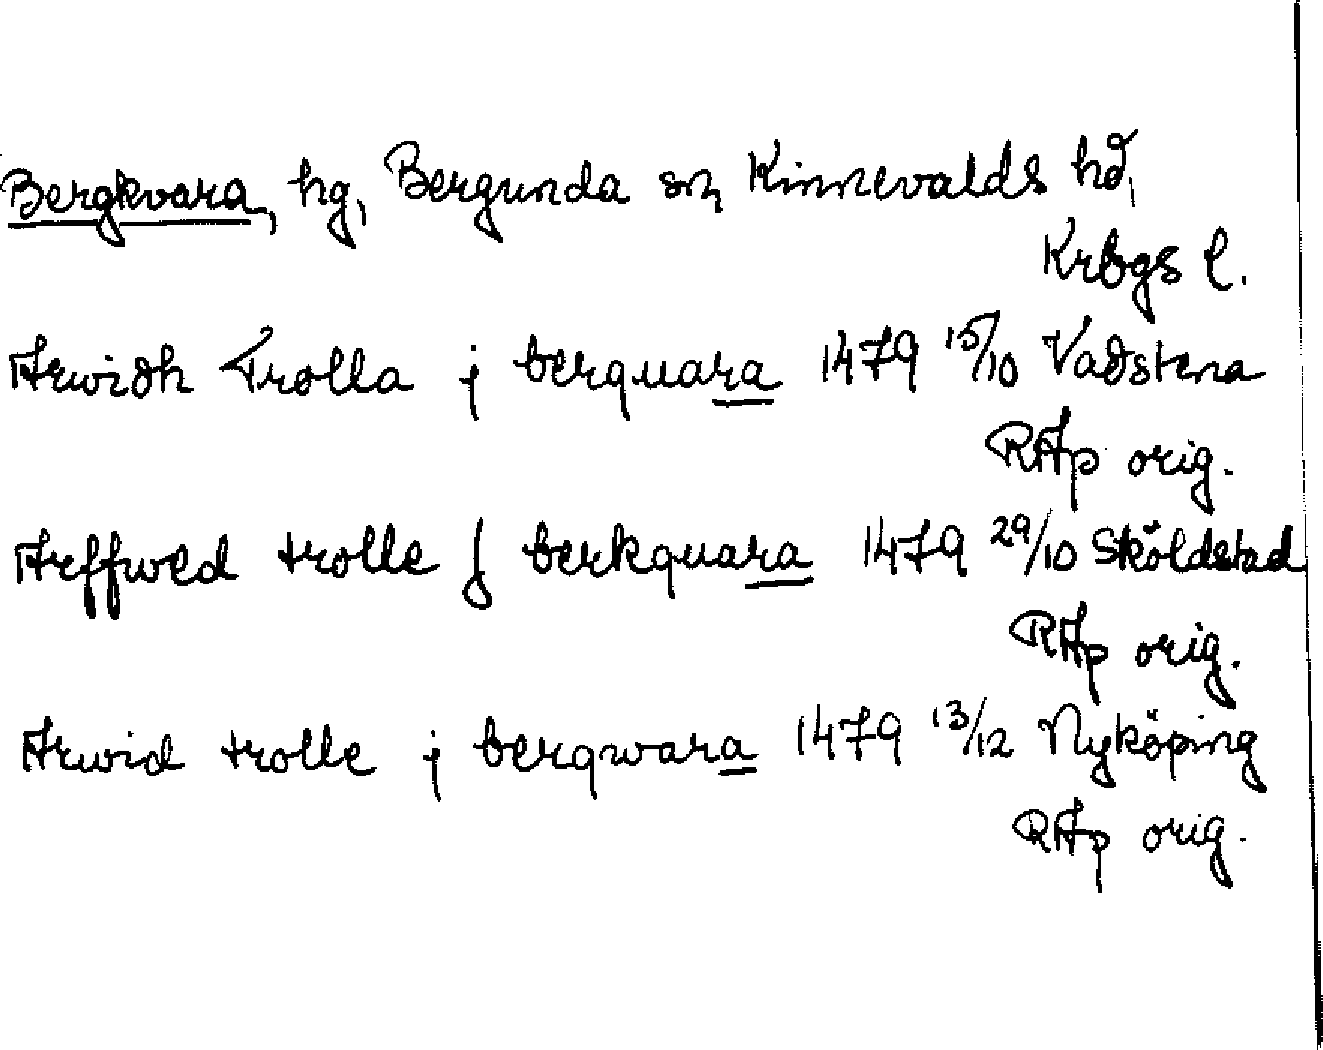 Bergkvara, hg, Bergunda sn, Kinnevalds hd,
Krbgs l.
Arwidh Trolla j berquara 1479 15/10 Vadstena
RAp orig.
Areffwed trolle j berkquara 1479 29/10 Sköldstad
RAp orig.
Arwid trolle j bergwara 1479 13/12 Nyköping
RAp orig.